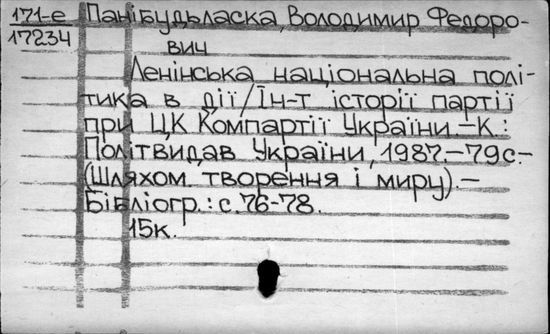 171-е Панібудьласка, Володимир Федоро-
17234 вич
Ленінська національна полі-
тика в дії/Ін-т історії партії
при ЦК Компартії України.-К.:
Політвидав України, 1987.-79с.-
(Шляхом творення і миру).-
Бібліогр.: с.76-78.
15к.